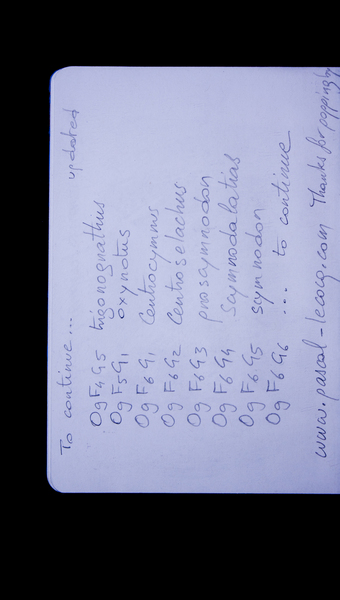 To continue... updated
Og F4 G5 trigonognathus
Og F5 G1 oxynotus
Og F6 G1 Centrocymnus
Og F6 G2 Centroselachus
Og F6 G3 proscymnodon
Og F6 G4 Scymnodalatias
Og F6 G5 scymnodon
Og F6 G6 ... to continue
www.pascal-lecocq.com Thanks for popping by